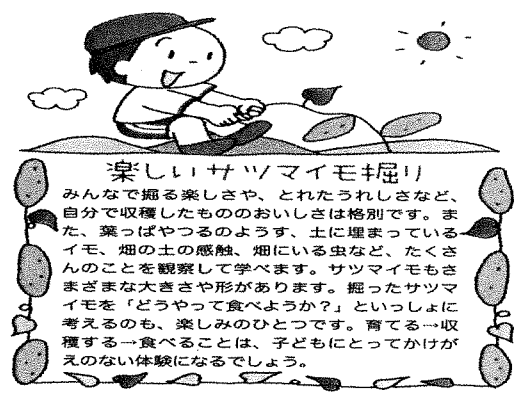 楽しいサツマイモ掘り
みんなで掘る楽しさや、とれたうれしさなど、
自分で収穫したもののおいしさは格別です。ま
た、葉っぱやつるのようす、土に埋まっている
イモ、畑の土の感触、畑にいる虫など、たくさ
んのことを観察して学べます。サツマイモもさ
まざまな大きさや形があります。掘ったサツマ
イモを「どうやって食べようか？」といっしょに
考えるのも、楽しみのひとつです。育てる→収
穫する→食べることは、子どもにとってかけが
えのない体験になるでしょう。